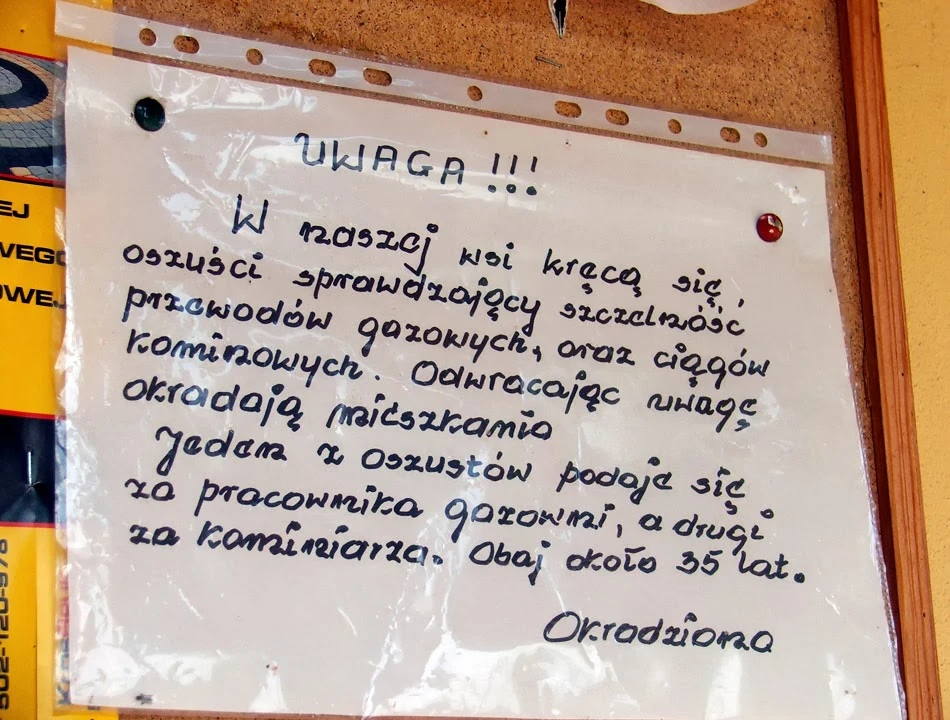 UWAGA !!!
W naszej wsi kręcą się,
oszuści sprawdzający szczelność
przewodów gazowych, oraz ciągów
kominowych. Odwracając uwagę
okradają mieszkania
Jeden z oszustów podaje się
za pracownika gazowni, a drugi
za kominiarza. Obaj około 35 lat.
Okradziona
EJ
WEGO
OWEJ
502-120-978